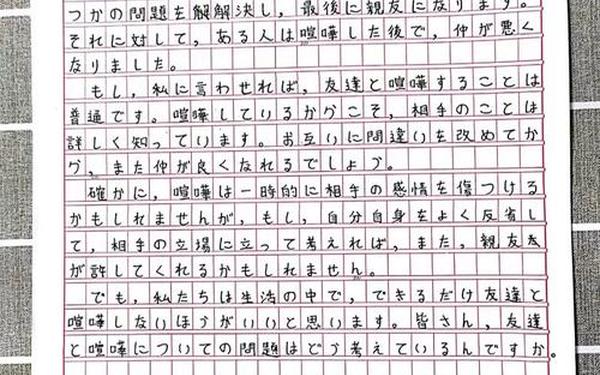 つかの問題を解解決し，最後に親友になります。
それに対して，ある人は喧嘩した後で，仲が悪く
なりました。
もし，私に言わせれば，友達と喧嘩することは
普通です。喧嘩しているからこそ，相手のことは
詳しく知っています。お互いに間違いを改めてか
ら，また仲が良くなれるでしょう。
確かに，喧嘩は一時的に相手の感情を傷つける
かもしれませんが，もし，自分自身をよく反省し
て，相手の立場に立って考えれば，また，親友友
が許してくれるかもしれません。
でも，私たちは生活の中で，できるだけ友達と
喧嘩しないほうがいいと思います。皆さん，友達
と喧嘩についての問題はどう考えているんですか。